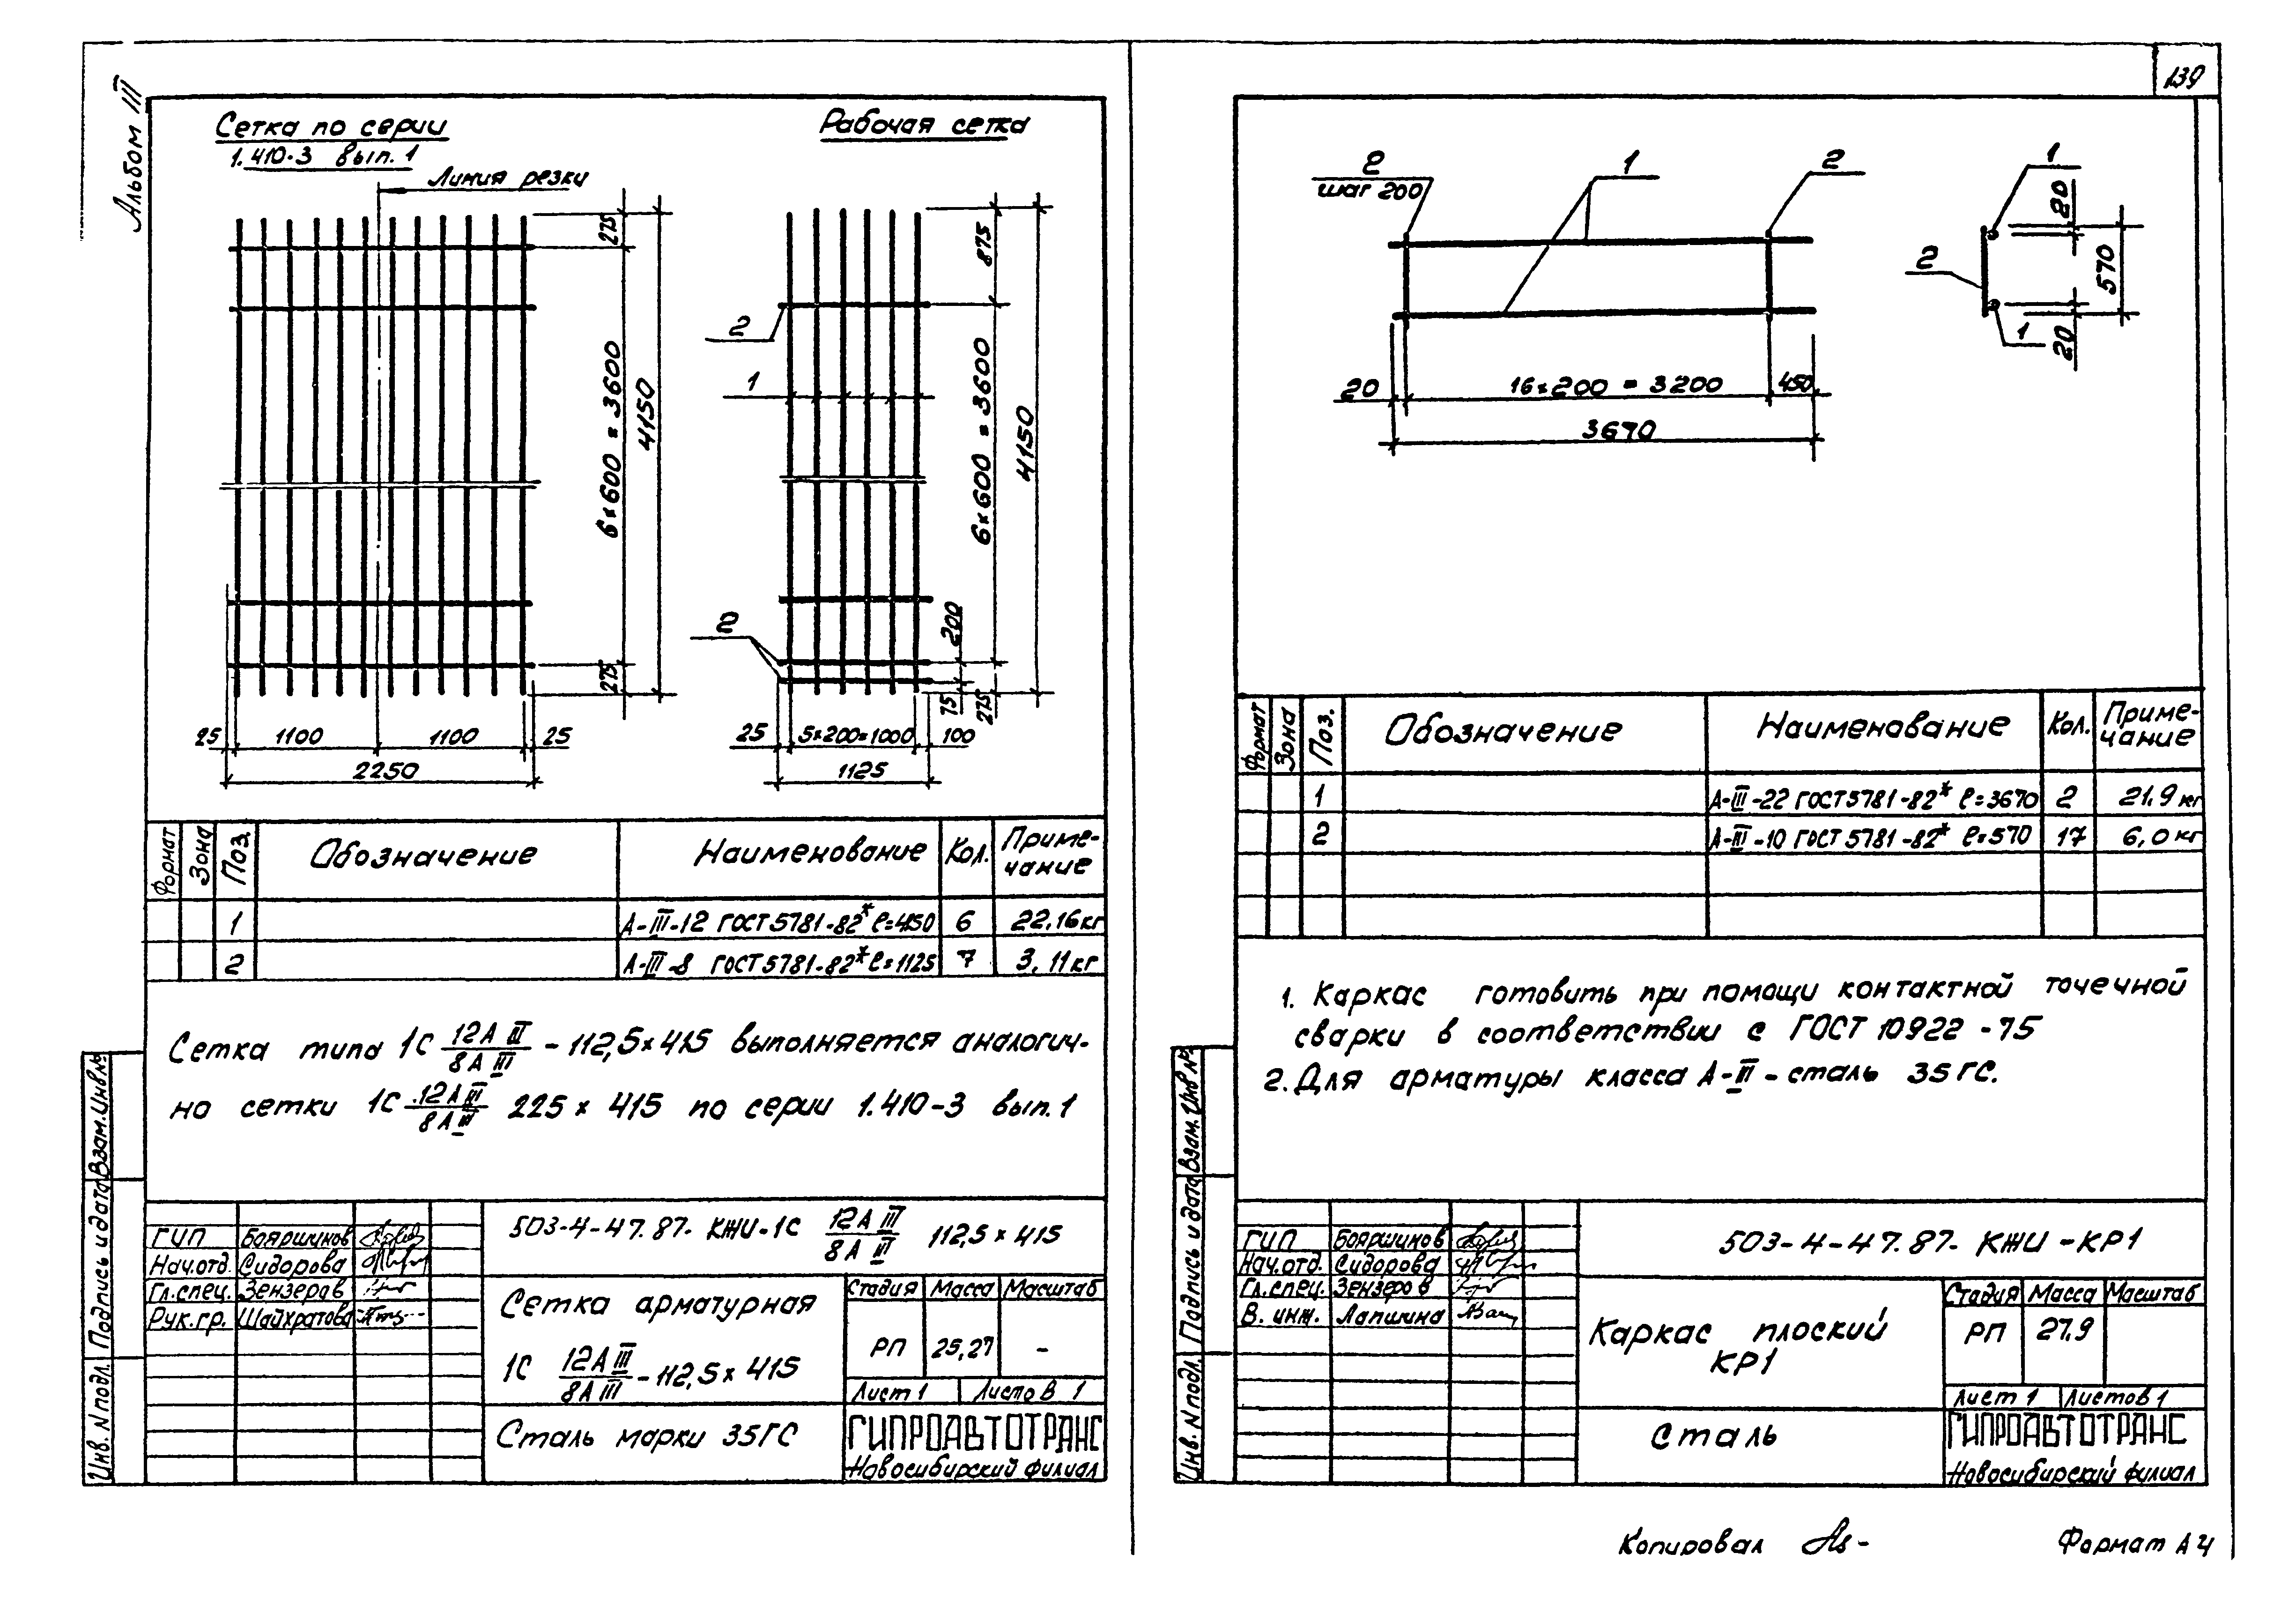 Альбом III
Сетка по серии
1.410-3 вып. 1
Линия резки
275
6×600 = 3600
4150
275
25
1100
1100
25
2250
Рабочая сетка
2
1
2
875
6×600 = 3600
4150
200
75
275
25
5×200=1000
100
1125
Формат
Зона
Поз.
Обозначение
Наименование
Кол.
Приме-
чание
1 А-III-12 ГОСТ 5781-82* ℓ=4150 6 22,16кг
2 А-III-8 ГОСТ 5781-82* ℓ=1125 7 3,11кг
Сетка типа 1С 12А III/8А III - 112,5×415 выполняется аналогич-
но сетки 1С 12А III/8А III 225×415 по серии 1.410-3 вып.1
Инв. N подл.
Подпись и дата
Взам. Инв №
ГИП Бояршинов
Нач.отд. Сидорова
Гл.спец. Зензеров
Рук.гр. Шайхратова
503-4-47.87. КЖИ-1С 12А III/8А III 112,5×415
Сетка арматурная
1С 12А III/8А III - 112,5×415
Стадия Масса Масштаб
РП 25,27 -
Лист 1 Листов 1
Сталь марки 35ГС
ГИПРОАВТОТРАНС
Новосибирский филиал
139
2
шаг 200
1
2
20
16×200 = 3200
450
3670
1
2
1
20
570
20
Формат
Зона
Поз.
Обозначение
Наименование
Кол.
Приме-
чание
1 А-III-22 ГОСТ 5781-82* ℓ=3670 2 21.9 кг
2 А-III-10 ГОСТ 5781-82* ℓ=570 17 6,0 кг
1. Каркас готовить при помощи контактной точечной
сварки в соответствии с ГОСТ 10922-75
2. Для арматуры класса А-III - сталь 35ГС.
Инв. N подл.
Подпись и дата
Взам. Инв №
ГИП Бояршинов
Нач.отд. Сидорова
Гл.спец. Зензеров
В. инж. Лапшина
503-4-47.87. КЖИ-КР1
Каркас плоский
КР1
Стадия Масса Масштаб
РП 27.9
Лист 1 Листов 1
Сталь
ГИПРОАВТОТРАНС
Новосибирский филиал
Копировал
Формат А4